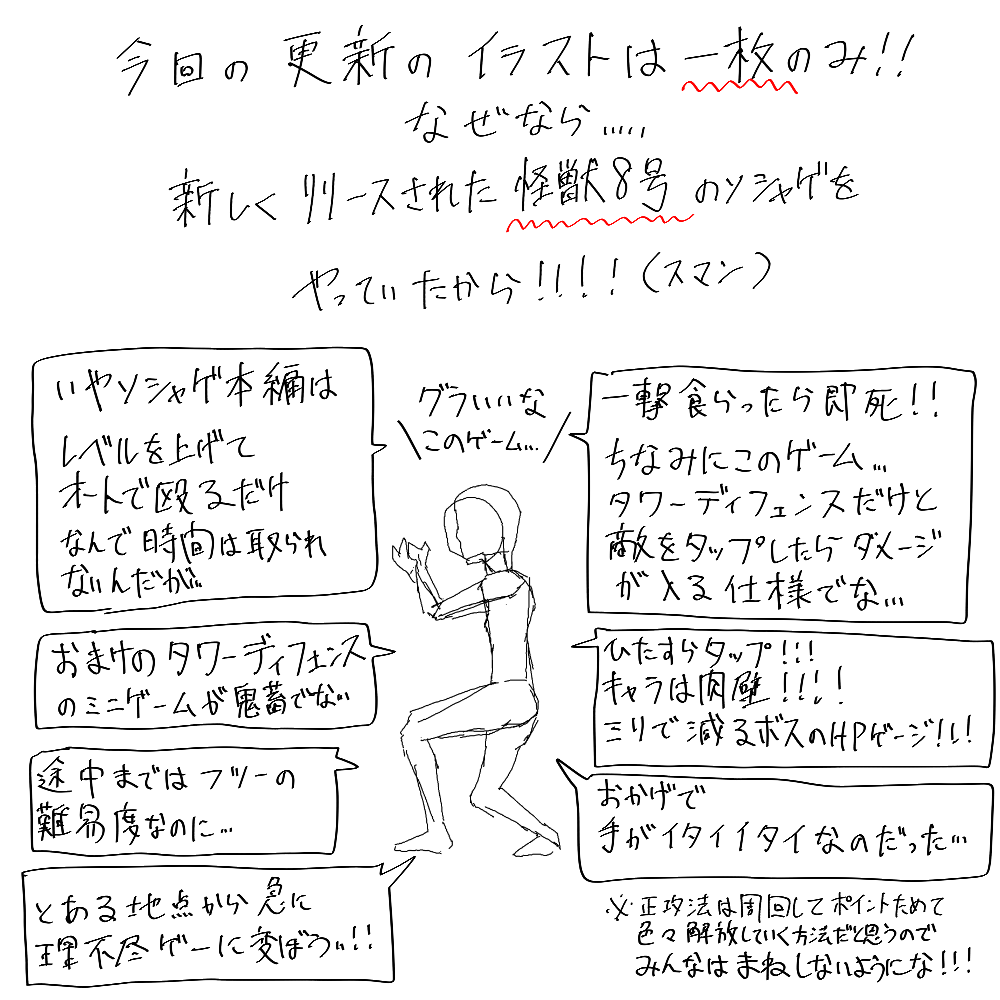 今回の更新のイラストは一枚のみ!!
なぜなら.....
新しくリリースされた怪獣8号のソシャゲを
やっていたから!!!!(スマン)
いやソシャゲ本編は
レベルを上げて
オートで殴るだけ
なんで時間は取られ
ないんだが...
おまけのタワーディフェンス
のミニゲームが鬼畜でない
途中まではフツーの
難易度なのに...
とある地点から急に
理不尽ゲーに変ぼうい!!
グラいいな
このゲーム...
一撃食らったら即死!!
ちなみにこのゲーム...
タワーディフェンスだけど
敵をタップしたらダメージ
が入る仕様でな...
ひたすらタップ!!!
キャラは肉壁!!!!
ミリで減るボスのHPゲージ!!!
おかげで
手がイタイイタイなのだった...
※正攻法は周回してポイントためて
色々解放していく方法だと思うので
みんなはまねしないようにな!!!